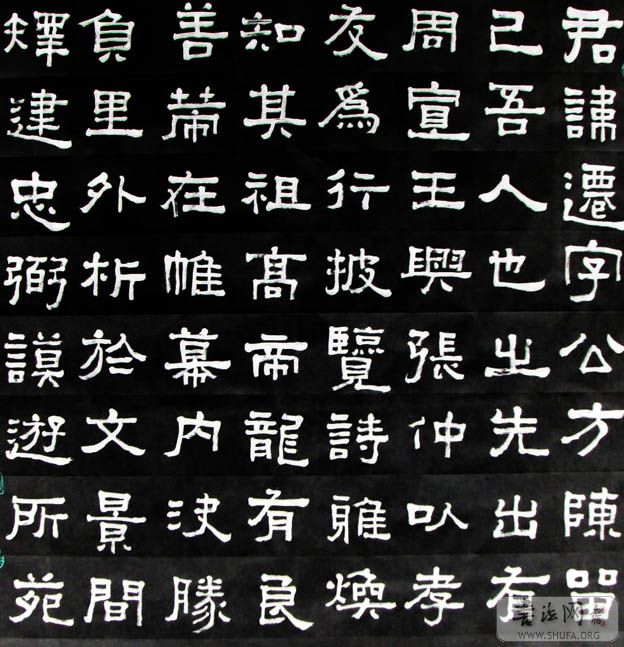 君諱遷字公方陳留
己吾人也之先出有
周宣王興張仲以孝
友爲行披覽詩雅煥
知其祖高帝龍有良
善策在帷幕内決勝
負里外析於文景間
釋建忠弼謨遊所苑
书法网
WWW.SHUFA.ORG